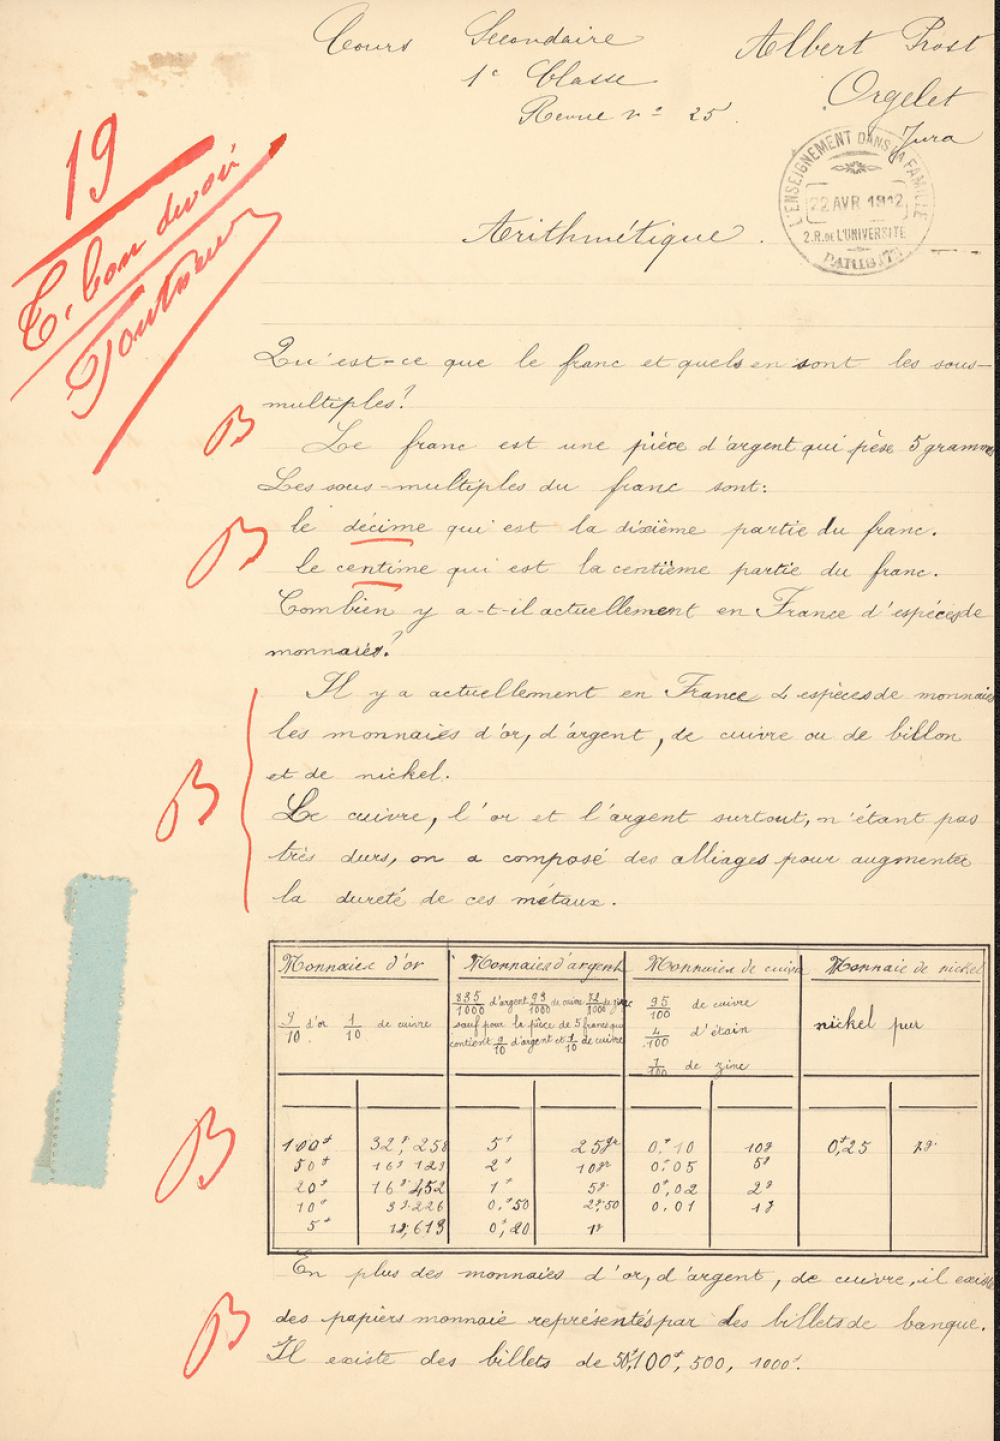 Cours Secondaire
1e Classe
Revue no 25.
Albert Prost
Orgelet
Jura
L'ENSEIGNEMENT DANS LA FAMILLE
22 AVR 1912
2.R.DE L'UNIVERSITÉ
PARIS (7e)
19
T. bon devoir
Arithmétique.
Qu'est-ce que le franc et quels en sont les sous-
multiples?
B
Le franc est une pièce d'argent qui pèse 5 grammes
Les sous-multiples du franc sont:
B
le décime qui est la dixième partie du franc.
le centime qui est la centième partie du franc.
Combien y a-t-il actuellement en France d'espèces de
monnaies?
Il y a actuellement en France 4 espèces de monnaies
les monnaies d'or, d'argent, de cuivre ou de billon
et de nickel.
B
Le cuivre, l'or et l'argent surtout, n'étant pas
très durs, on a composé des alliages pour augmenter
la dureté de ces métaux.
Monnaies d'or Monnaies d'argent Monnaies de cuivre Monnaie de nickel
9/10 d'or 1/10 de cuivre
835/1000 d'argent 93/1000 de cuivre 72/1000 de zinc
sauf pour la pièce de 5 francs qui
contient 9/10 d'argent et 1/10 de cuivre
95/100 de cuivre
4/100 d'étain
1/100 de zinc
nickel pur
B
100f 32g,258 5f 25gr 0,f10 10g 0f,25 7g
50f 16g 129 2f 10gr 0f.05 5g
20f 16g.452 1f 5g 0f,02 2g
10f 3g.226 0,f50 2g.50 0.01 1g
5f 1g,613 0f,20 1g
En plus des monnaies d'or, d'argent, de cuivre, il existe
B
des papiers monnaie représentés par des billets de banque.
Il existe des billets de 50f, 100f, 500, 1000f.